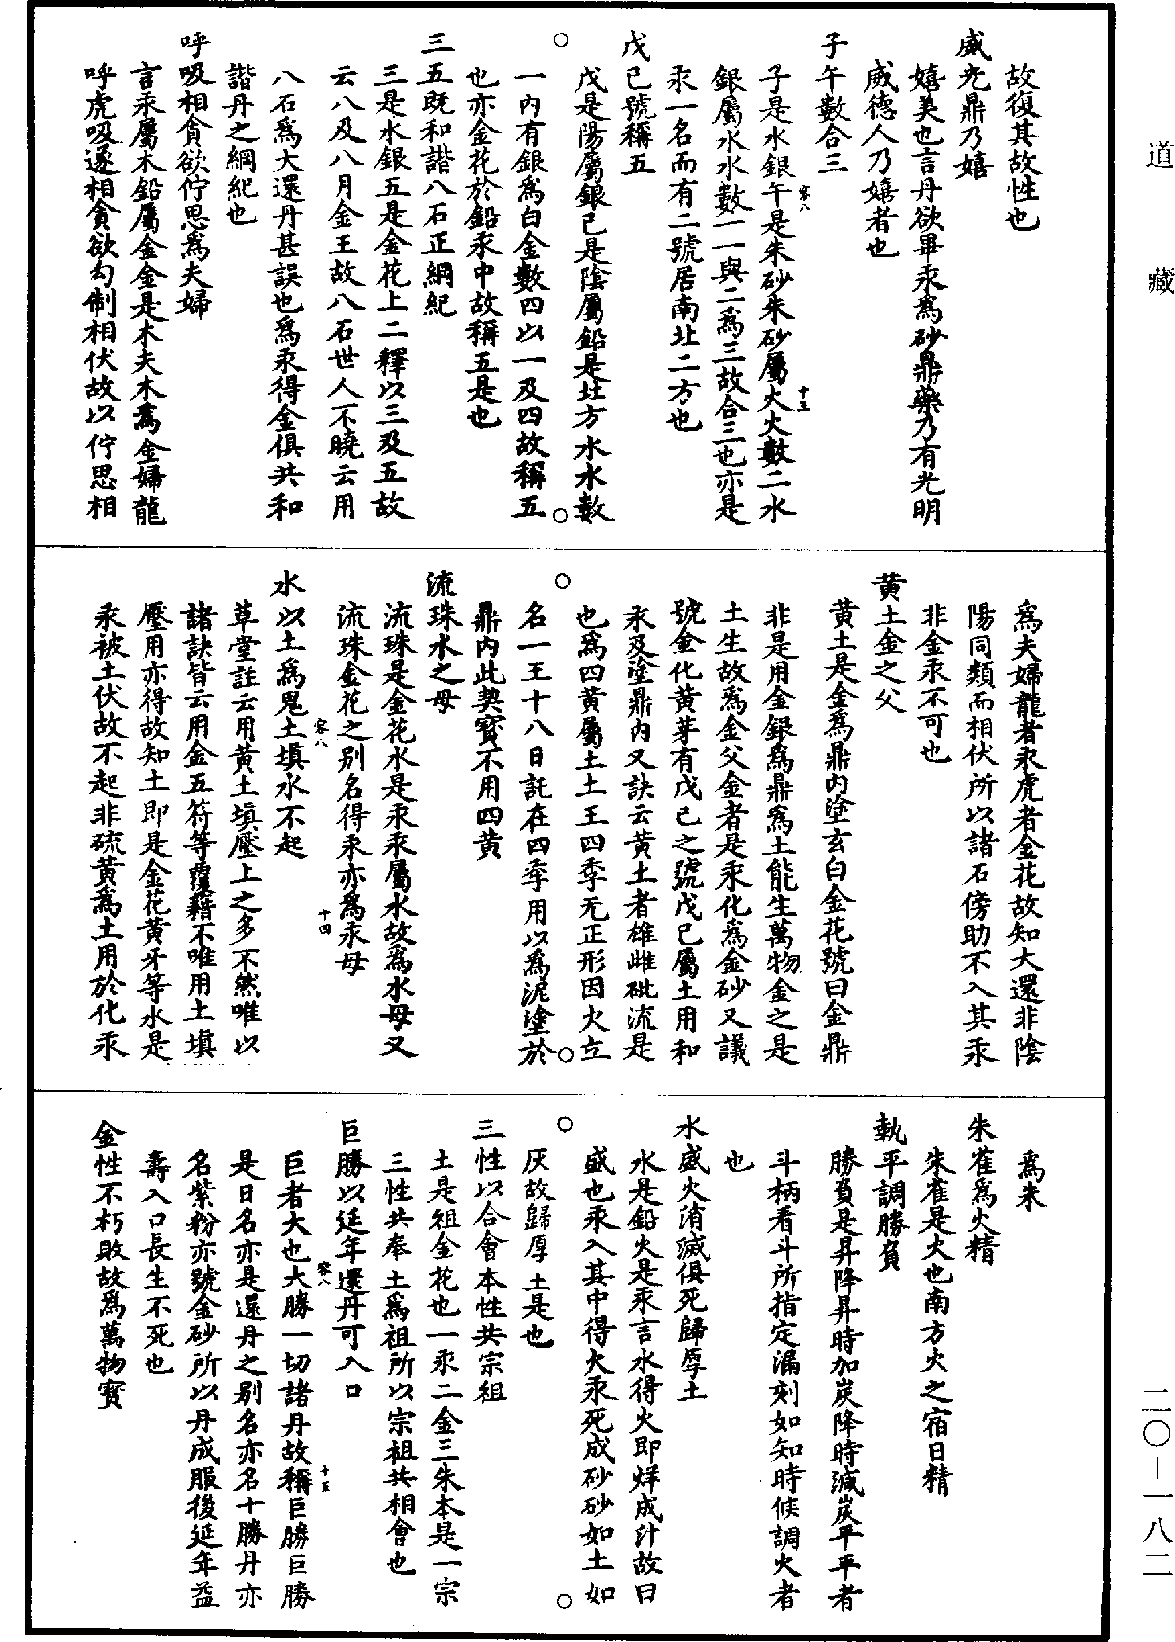 道藏
故復其故性也
威光鼎乃嬉
嬉美也言丹欲畢汞爲砂鼎藥乃有光明
威德人乃嬉者也
子午數合三
子是水銀午是朱砂朱砂屬火火數二水
容八
十三
銀屬水水數一一與二爲三故合三也亦是
汞一名而有二號居南北二方也
戊己號稱五
戊是陽屬銀己是陰屬鉛是北方水水數
一內有銀爲白金數四以一及四故稱五
也亦金花於鉛汞中故稱五是也
三五既和諧八石正綱紀
三是水銀五是金花上二釋以三及五故
云八及八月金王故八石世人不曉云用
八石爲大還丹甚誤也爲汞得金俱共和
諧丹之綱紀也
呼吸相貪欲佇思爲夫婦
言汞屬木鉛屬金金是木夫木爲金婦龍
呼虎吸遂相貪欲勾制相伏故以佇思相
爲夫婦龍者汞虎者金花故知大還非陰
陽同類而相伏所以諸石傍助不入其汞
非金汞不可也
黃土金之父
黃土是金爲鼎內塗玄白金花號曰金鼎
非是用金銀爲鼎爲土能生萬物金之是
土生故爲金父金者是汞化爲金砂又議
號金化黃芽有戊己之號戊己屬土用和
汞及塗鼎內又訣云黃土者雄雌砒流是
也爲四黃屬土土王四季无正形因火立
名一王十八日託在四季用以爲泥塗於
鼎內此契寶不用四黃
流珠水之母
流珠是金花水是汞汞屬水故爲水母又
流珠金花之别名得汞亦爲汞母
容八
十四
水以土爲鬼土填水不起
草堂註云用黃土填壓上之多不然唯以
諸訣皆云用金五符等覆藉不唯用土填
壓用亦得故知土即是金花黃牙等水是
汞被土伏故不起非硫黃爲土用於化汞
爲朱
朱雀爲火精
朱雀是火也南方火之宿日精
執平調勝負
勝負是昇降昇時加炭降時減炭平平者
斗柄看斗所指定漏刻如知時候調火者
也
水盛火消滅俱死歸厚土
水是鉛火是汞言水得火即烊成汁故曰
盛也汞入其中得火汞死成砂砂如土如
灰故歸厚土是也
三性以合會本性共宗祖
土是祖金花也一汞二金三朱本是一宗
三性共奉土爲祖所以宗祖共相會也
巨勝以延年還丹可入口
容八
十五
巨者大也大勝一切諸丹故稱巨勝巨勝
是日名亦是還丹之别名亦名十勝丹亦
名紫粉亦號金砂所以丹成服後延年益
壽入口長生不死也
金性不朽敗故爲萬物寶
二〇—一八二